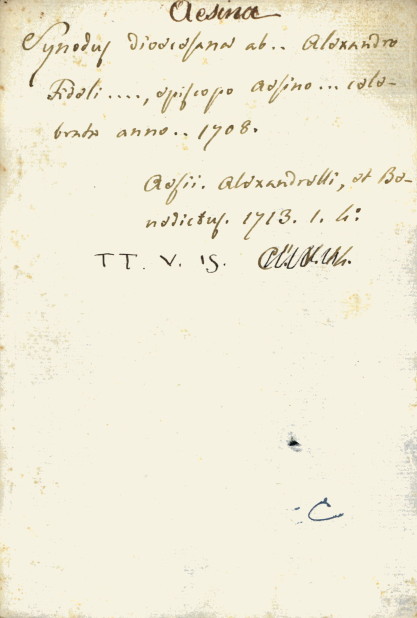 Aesina
Synodus dioecesana ab.. Alexandro
Fideli ...., episcopo Aesino... cele-
brata anno.. 1708.
Aesii. Alexandrelli, et Be-
nedictus. 1713. 1. 4:
TT. V. 15.
C